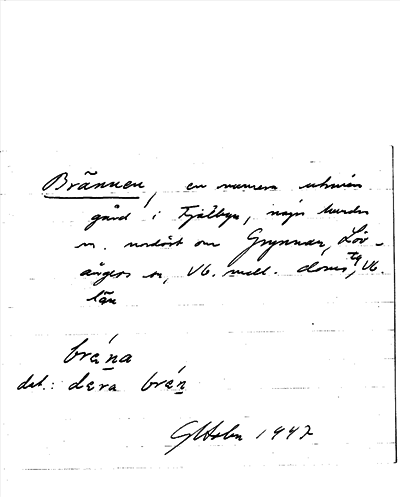 Brännen, en numera utmien
gård i Fjälbyn, några hundra
m. nordöst om Grynnan, Löv-
ångers sn, Vb. mell. doms, Vb.
län
bréna
dat.: dera brén
GHolm 1947